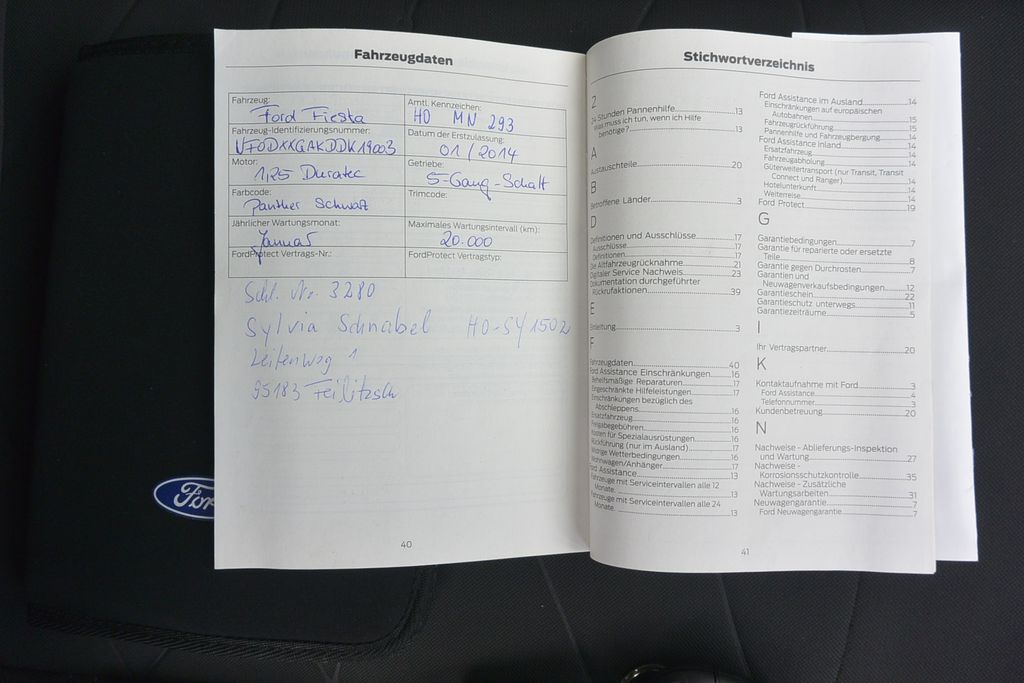 Fahrzeugdaten
Fahrzeug:
Ford Fiesta
Amtl. Kennzeichen:
HO MN 293
Fahrzeug-Identifizierungsnummer:
WF0DXXGAKDDK19003
Datum der Erstzulassung:
01/2014
Motor:
1,25 Duratec
Getriebe:
5-Gang-Schalt
Farbcode:
Panther Schwarz
Trimcode:
Jährlicher Wartungsmonat:
Januar
Maximales Wartungsintervall (km):
20.000
FordProtect Vertrags-Nr.:
FordProtect Vertragstyp:
Schl. Nr. 3280
Sylvia Schnabel HO-SY 1502
Leitenweg 1
95183 Feilitzsch
40
Ford
Stichwortverzeichnis
2
24 Stunden Pannenhilfe 13
Was muss ich tun, wenn ich Hilfe
benötige? 13
A
Austauschteile 20
B
Betroffene Länder 3
D
Definitionen und Ausschlüsse 17
Ausschlüsse 17
Definitionen 17
Die Altfahrzeugrücknahme 21
Digitaler Service Nachweis 23
Dokumentation durchgeführter
Rückrufaktionen 39
E
Einleitung 3
F
Fahrzeugdaten 40
Ford Assistance Einschränkungen 16
Behelfsmäßige Reparaturen 17
Eingeschränkte Hilfeleistungen 17
Einschränkungen bezüglich des
Abschleppens 16
Ersatzfahrzeug 16
Freigabegebühren 16
Kosten für Spezialausrüstungen 16
Rückführung (nur im Ausland) 17
Widrige Wetterbedingungen 16
Wohnwagen/Anhänger 17
Ford Assistance 13
Fahrzeuge mit Serviceintervallen alle 12
Monate 13
Fahrzeuge mit Serviceintervallen alle 24
Monate 13
Ford Assistance im Ausland 14
Einschränkungen auf europäischen
Autobahnen 15
Fahrzeugrückführung 15
Pannenhilfe und Fahrzeugbergung 14
Ford Assistance Inland 14
Ersatzfahrzeug 14
Fahrzeugabholung 14
Güterweitertransport (nur Transit, Transit
Connect und Ranger) 14
Hotelunterkunft 14
Weiterreise 14
Ford Protect 19
G
Garantiebedingungen 7
Garantie für reparierte oder ersetzte
Teile 8
Garantie gegen Durchrosten 7
Garantien und
Neuwagenverkaufsbedingungen 12
Garantieschein 22
Garantieschutz unterwegs 11
Garantiezeiträume 5
I
Ihr Vertragspartner 20
K
Kontaktaufnahme mit Ford 3
Ford Assistance 4
Telefonnummer 3
Kundenbetreuung 20
N
Nachweise - Ablieferungs-Inspektion
und Wartung 27
Nachweise -
Korrosionsschutzkontrolle 35
Nachweise - Zusätzliche
Wartungsarbeiten 31
Neuwagengarantie 7
Ford Neuwagengarantie 7
41